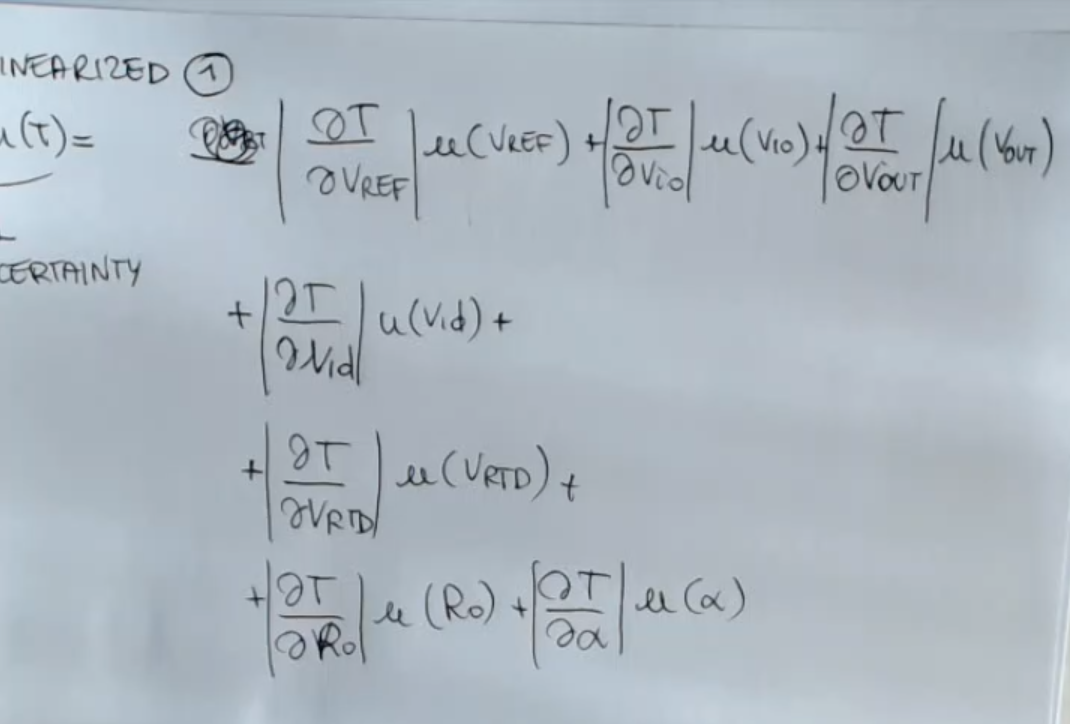 INEARIZED ①
u(T)= |∂T/∂VREF| u(VREF) + |∂T/∂Vio| u(Vio) + |∂T/∂VOUT| u(VOUT)
CERTAINTY
+ |∂T/∂Vid| u(Vid) +
+ |∂T/∂VRTD| u(VRTD) +
+ |∂T/∂R0| u(R0) + |∂T/∂α| u(α)